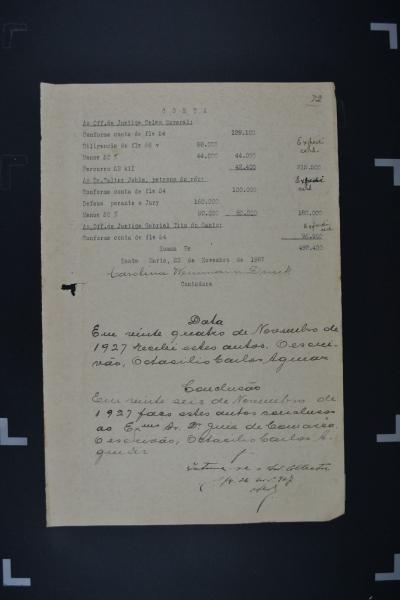 72
C O N T A
Ao Off.de Justiça Celso Amaral:
Conforme conta de fls 54 129.100
Diligencia de fls 66 v 88.000
Menos 50 % 44.000 44.000
Percurso
Ao Dr.Walter Jobim, patrono do réo:
Conforme conta de fls 54 100.000
Defesa perante o Jury 160.000
Menos 50 % 80.000 80.000 180.000
Ao Off.de Justiça Gabriel
Conforme conta de fls 54
Somma Rs
Santa Maria, 23 de Novembro de 1927
Carolina Weinmann Druck
Contadora
Data
Em vinte quatro de Novembro de
1927 recebi estes autos. O escri-
vão, Octacilio Carlos Aguiar
Conclusão
Em vinte seis de Novembro de
1927 faço estes autos conclusos
ao Exmo Sr. Dr. Juiz de Comarca.
O escrivão, Octacilio Carlos A-
guiar